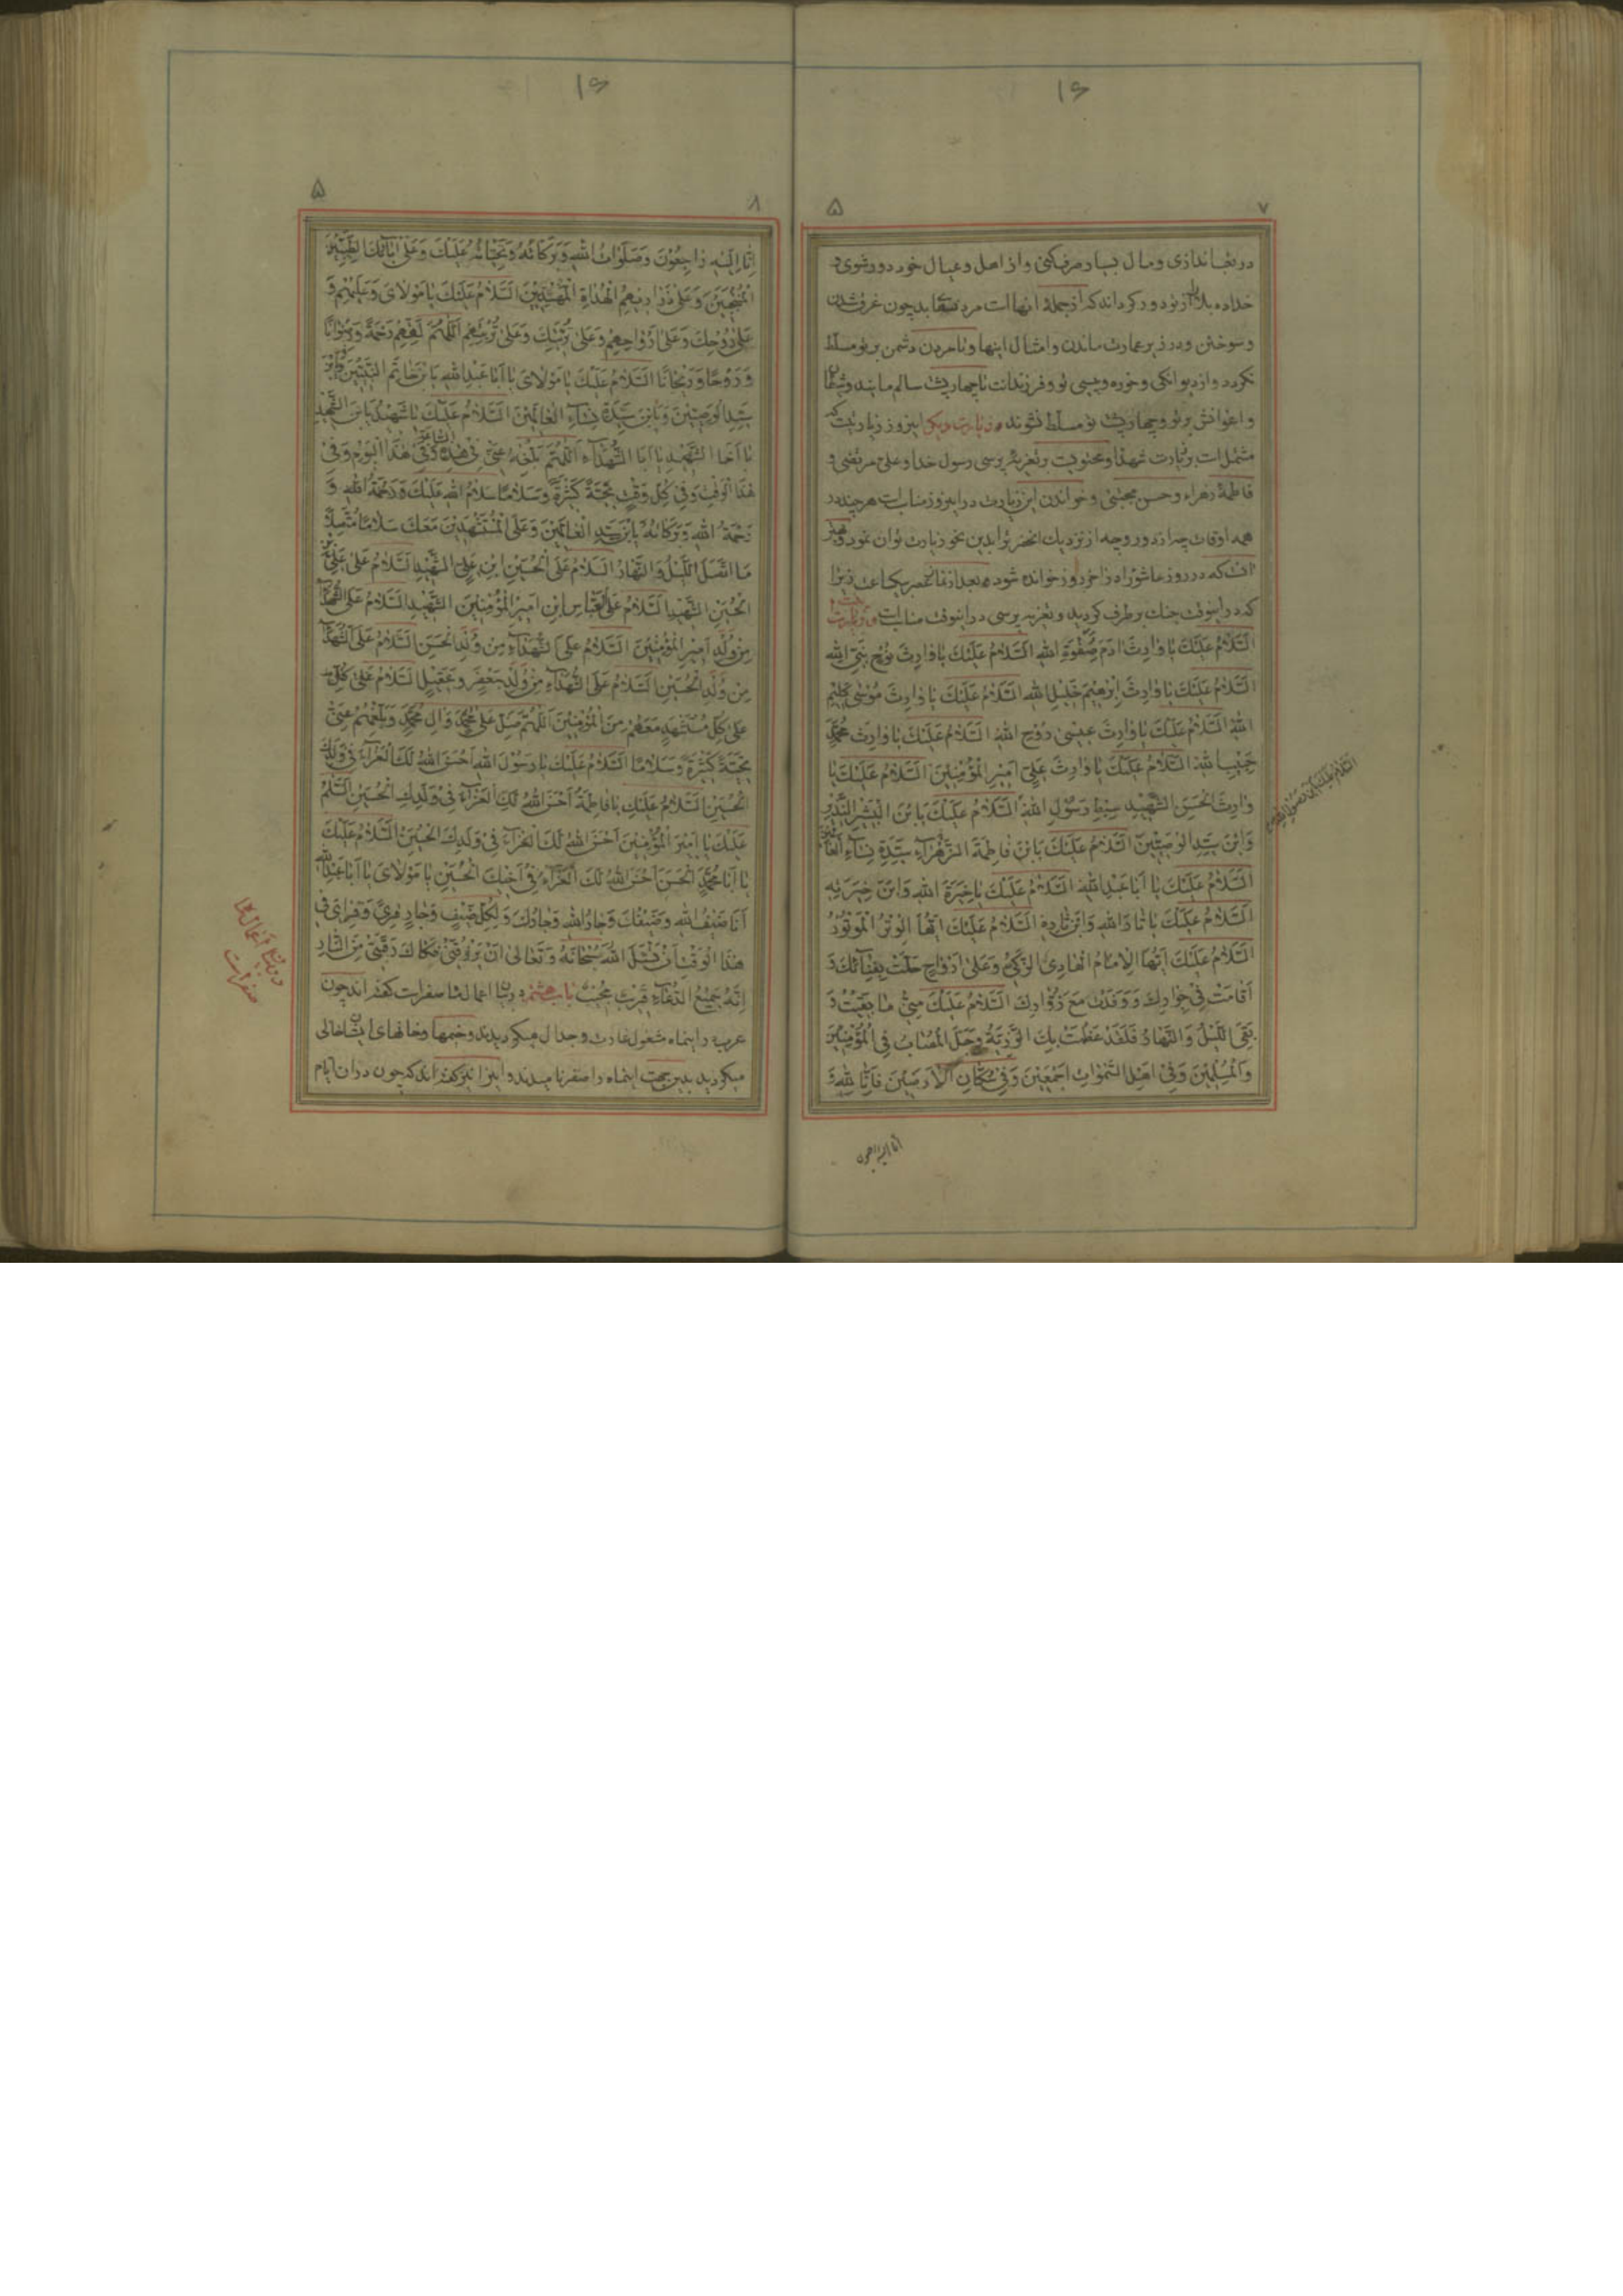 ۱۶
۷
۵
در تعب اندازی و مال بسیار صرف کنی و از اهل و عیال خود دور شوی و
خدا ده بلا را از تو دور کرداند که از جملهٔ انها است مردن بد چون غرق شدن
و سوختن و در زیر عمارت ماندن و امثال اینها و تا مردن دشمن بر تو مسلط
نکردد و از دیوانکی و خوره و پیسی تو و فرزندانت تا چهار پشت سالم مانید و شیطان
و اعوانش بر تو و چهار پشت تو مسلط نشوند و زیارت دیکر این روز زیارتیست که
مشتمل است بر زیارت شهدا و محتویست بر تعزیه پرسی رسول خدا و علی مرتضی و
فاطمهٔ زهراء و حسن مجتبی و خواندن این زیارت در این روز مناسبات هر چند در
همه اوقات چه از دور و چه از نزدیک انحضرت را بدین نحو زیارت توان نمود و بهتر
انست که در روز عاشورا در اخر روز خوانده شود بعد از نماز عصر بیکساعت زیرا
که در اینوقت جنک برطرف کردید و تعزیه پرسی در اینوقت مناسبست و زیارت
اَلسَّلامُ عَلَیْكَ یا وارِثَ ادَمَ صَفْوَةِ اللهِ اَلسَّلامُ عَلَیْكَ یا وارِثَ نُوْحٍ نَبِیِّ اللهِ
اَلسَّلامُ عَلَیْكَ یا وارِثَ اِبْرهِیْمَ خَلِیْلِ اللهِ اَلسَّلامُ عَلَیْكَ یا وارِثَ مُوْسٰی کَلِیْمِ
اللهِ اَلسَّلامُ عَلَیْكَ یا وارِثَ عِیْسٰی رُوْحِ اللهِ اَلسَّلامُ عَلَیْكَ یا وارِثَ مُحَمَّدٍ
حَبِیْبِ اللهِ اَلسَّلامُ عَلَیْكَ یا وارِثَ عَلِیٍّ اَمِیْرِ الْمُؤْمِنِیْنَ اَلسَّلامُ عَلَیْكَ یا
وارِثَ الْحَسَنِ الشَّهِیْدِ سِبْطِ رَسُوْلِ اللهِ اَلسَّلامُ عَلَیْكَ یَا بْنَ الْبَشِیْرِ النَّذِیْرِ
وَابْنَ سَیِّدِ الْوَصِیِّیْنَ اَلسَّلامُ عَلَیْكَ یَابْنَ فاطِمَةَ الزَّهْرآءِ سَیِّدَةِ نِسآءِ الْعالَمِیْنَ
اَلسَّلامُ عَلَیْكَ یا اَبا عَبْدِ اللهِ اَلسَّلامُ عَلَیْكَ یا خِیَرَةَ اللهِ وَابْنَ خِیَرَتِهِ
اَلسَّلامُ عَلَیْكَ یا ثارَ اللهِ وَابْنَ ثارِهِ اَلسَّلامُ عَلَیْكَ اَیُّهَا الْوِتْرُ الْمَوْتُوْرُ
اَلسَّلامُ عَلَیْكَ اَیُّهَا الْاِمامُ الْهادِی الزَّکِیُّ وَ عَلٰی اَرْواحٍ حَلَّتْ بِفِنآئِكَ وَ
اَقامَتْ فِیْ جِوارِكَ وَ وَفَدَتْ مَعَ زُوّارِكَ اَلسَّلامُ عَلَیْكَ مِنِّیْ ما بَقِیْتُ وَ
بَقِیَ اللَّیْلُ وَ النَّهارُ فَلَقَدْ عَظُمَتْ بِكَ الرَّزِیَّةُ وَ جَلَّ الْمُصابُ فِی الْمُؤْمِنِیْنَ
وَ الْمُسْلِمِیْنَ وَ فِیْ اَهْلِ السَّمٰواتِ اَجْمَعِیْنَ وَ فِیْ سُکّانِ الْاَرَضِیْنَ فَاِنّا لِلّٰهِ وَ
۱۶
۸
۵
اِنّا اِلَیْهِ راجِعُوْنَ وَ صَلَواتُ اللهِ وَ بَرَکاتُهُ وَ تَحِیّاتُهُ عَلَیْكَ وَ عَلٰی ابآئِكَ الطَّیِّبِیْنَ
الْمُنْتَجَبِیْنَ وَ عَلٰی ذَرارِیْهِمُ الْهُداةِ الْمَهْدِیِّیْنَ اَلسَّلامُ عَلَیْكَ یا مَوْلایَ وَ عَلَیْهِمْ وَ
عَلٰی رُوْحِكَ وَ عَلٰی اَرْواحِهِمْ وَ عَلٰی تُرْبَتِكَ وَ عَلٰی تُرْبَتِهِمْ اَللّٰهُمَّ لَقِّهِمْ رَحْمَةً وَ رِضْوانًا
وَ رَوْحًا وَ رَیْحانًا اَلسَّلامُ عَلَیْكَ یا مَوْلایَ یا اَبا عَبْدِ اللهِ یَا بْنَ خاتَمِ النَّبِیِّیْنَ وَ یَابْنَ
سَیِّدِ الْوَصِیِّیْنَ وَ یَابْنَ سَیِّدَةِ نِسآءِ الْعالَمِیْنَ اَلسَّلامُ عَلَیْكَ یا شَهِیْدُ یَا بْنَ الشَّهِیْدِ
یا اَخَا الشَّهِیْدِ یا اَبَا الشُّهَدآءِ اَللّٰهُمَّ بَلِّغْهُ عَنِّیْ فِیْ هٰذِهِ السّاعَةِ وَ فِیْ هٰذَا الْیَوْمِ وَ فِیْ
هٰذَا الْوَقْتِ وَ فِیْ کُلِّ وَقْتٍ تَحِیَّةً کَثِیْرَةً وَ سَلامًا سَلامُ اللهِ عَلَیْكَ وَ رَحْمَةُ اللهِ وَ
رَحْمَةُ اللهِ وَ بَرَکاتُهُ یَا بْنَ سَیِّدِ الْعالَمِیْنَ وَ عَلَی الْمُسْتَشْهَدِیْنَ مَعَكَ سَلامًا مُتَّصِلًا
مَا اتَّصَلَ اللَّیْلُ وَ النَّهارُ اَلسَّلامُ عَلَی الْحُسَیْنِ ابْنِ عَلِیٍّ الشَّهِیْدِ اَلسَّلامُ عَلٰی عَلِیِّ بْنِ
الْحُسَیْنِ الشَّهِیْدِ اَلسَّلامُ عَلَی الْعَبّاسِ ابْنِ اَمِیْرِ الْمُؤْمِنِیْنَ الشَّهِیْدِ اَلسَّلامُ عَلَی الشُّهَدآءِ
مِنْ وُلْدِ اَمِیْرِ الْمُؤْمِنِیْنَ اَلسَّلامُ عَلَی الشُّهَدآءِ مِنْ وُلْدِ الْحَسَنِ اَلسَّلامُ عَلَی الشُّهَدآءِ
مِنْ وُلْدِ الْحُسَیْنِ اَلسَّلامُ عَلَی الشُّهَدآءِ مِنْ وُلْدِ جَعْفَرٍ وَ عَقِیْلٍ اَلسَّلامُ عَلٰی کُلِّ
عَلٰی کُلِّ مُسْتَشْهَدٍ مَعَهُمْ مِنَ الْمُؤْمِنِیْنَ اَللّٰهُمَّ صَلِّ عَلٰی مُحَمَّدٍ وَ الِ مُحَمَّدٍ وَ بَلِّغْهُمْ عَنِّیْ
تَحِیَّةً کَثِیْرَةً وَ سَلامًا اَلسَّلامُ عَلَیْكَ یا رَسُوْلَ اللهِ اَحْسَنَ اللهُ لَكَ الْعَزآءَ فِیْ وَلَدِكَ
الْحُسَیْنِ اَلسَّلامُ عَلَیْكِ یا فاطِمَةُ اَحْسَنَ اللهُ لَكِ الْعَزآءَ فِیْ وَلَدِكِ الْحُسَیْنِ اَلسَّلامُ
عَلَیْكَ یا اَمِیْرَ الْمُؤْمِنِیْنَ اَحْسَنَ اللهُ لَكَ الْعَزآءَ فِیْ وَلَدِكَ الْحُسَیْنِ اَلسَّلامُ عَلَیْكَ
یا اَبا مُحَمَّدٍ الْحَسَنَ اَحْسَنَ اللهُ لَكَ الْعَزآءَ فِیْ اَخِیْكَ الْحُسَیْنِ یا مَوْلایَ یا اَبا عَبْدِ اللهِ
اَنَا ضَیْفُ اللهِ وَ ضَیْفُكَ وَ جارُ اللهِ وَ جارُكَ وَ لِکُلِّ ضَیْفٍ وَ جارٍ قِرًی وَ قِرایَ فِیْ
هٰذَا الْوَقْتِ اَنْ تَسْئَلَ اللهَ سُبْحانَهُ وَ تَعالٰی اَنْ یَرْزُقَنِیْ فَکاكَ رَقَبَتِیْ مِنَ النّارِ
اِنَّهُ سَمِیْعُ الدُّعآءِ قَرِیْبٌ مُجِیْبٌ باب هشتم در بیان اعمال ماه صفر است کفته اند چون
عرب در اینماه مشغول غارت و جدال میکردیدند و خیمها و خانهای ایشان خالی
میکردید بدین جهت اینماه را صفر نامیدند و این را نیز کفته اند که چون در ان ایام
در بیان اعمال ماه
صفر است
انا الیه راجعون